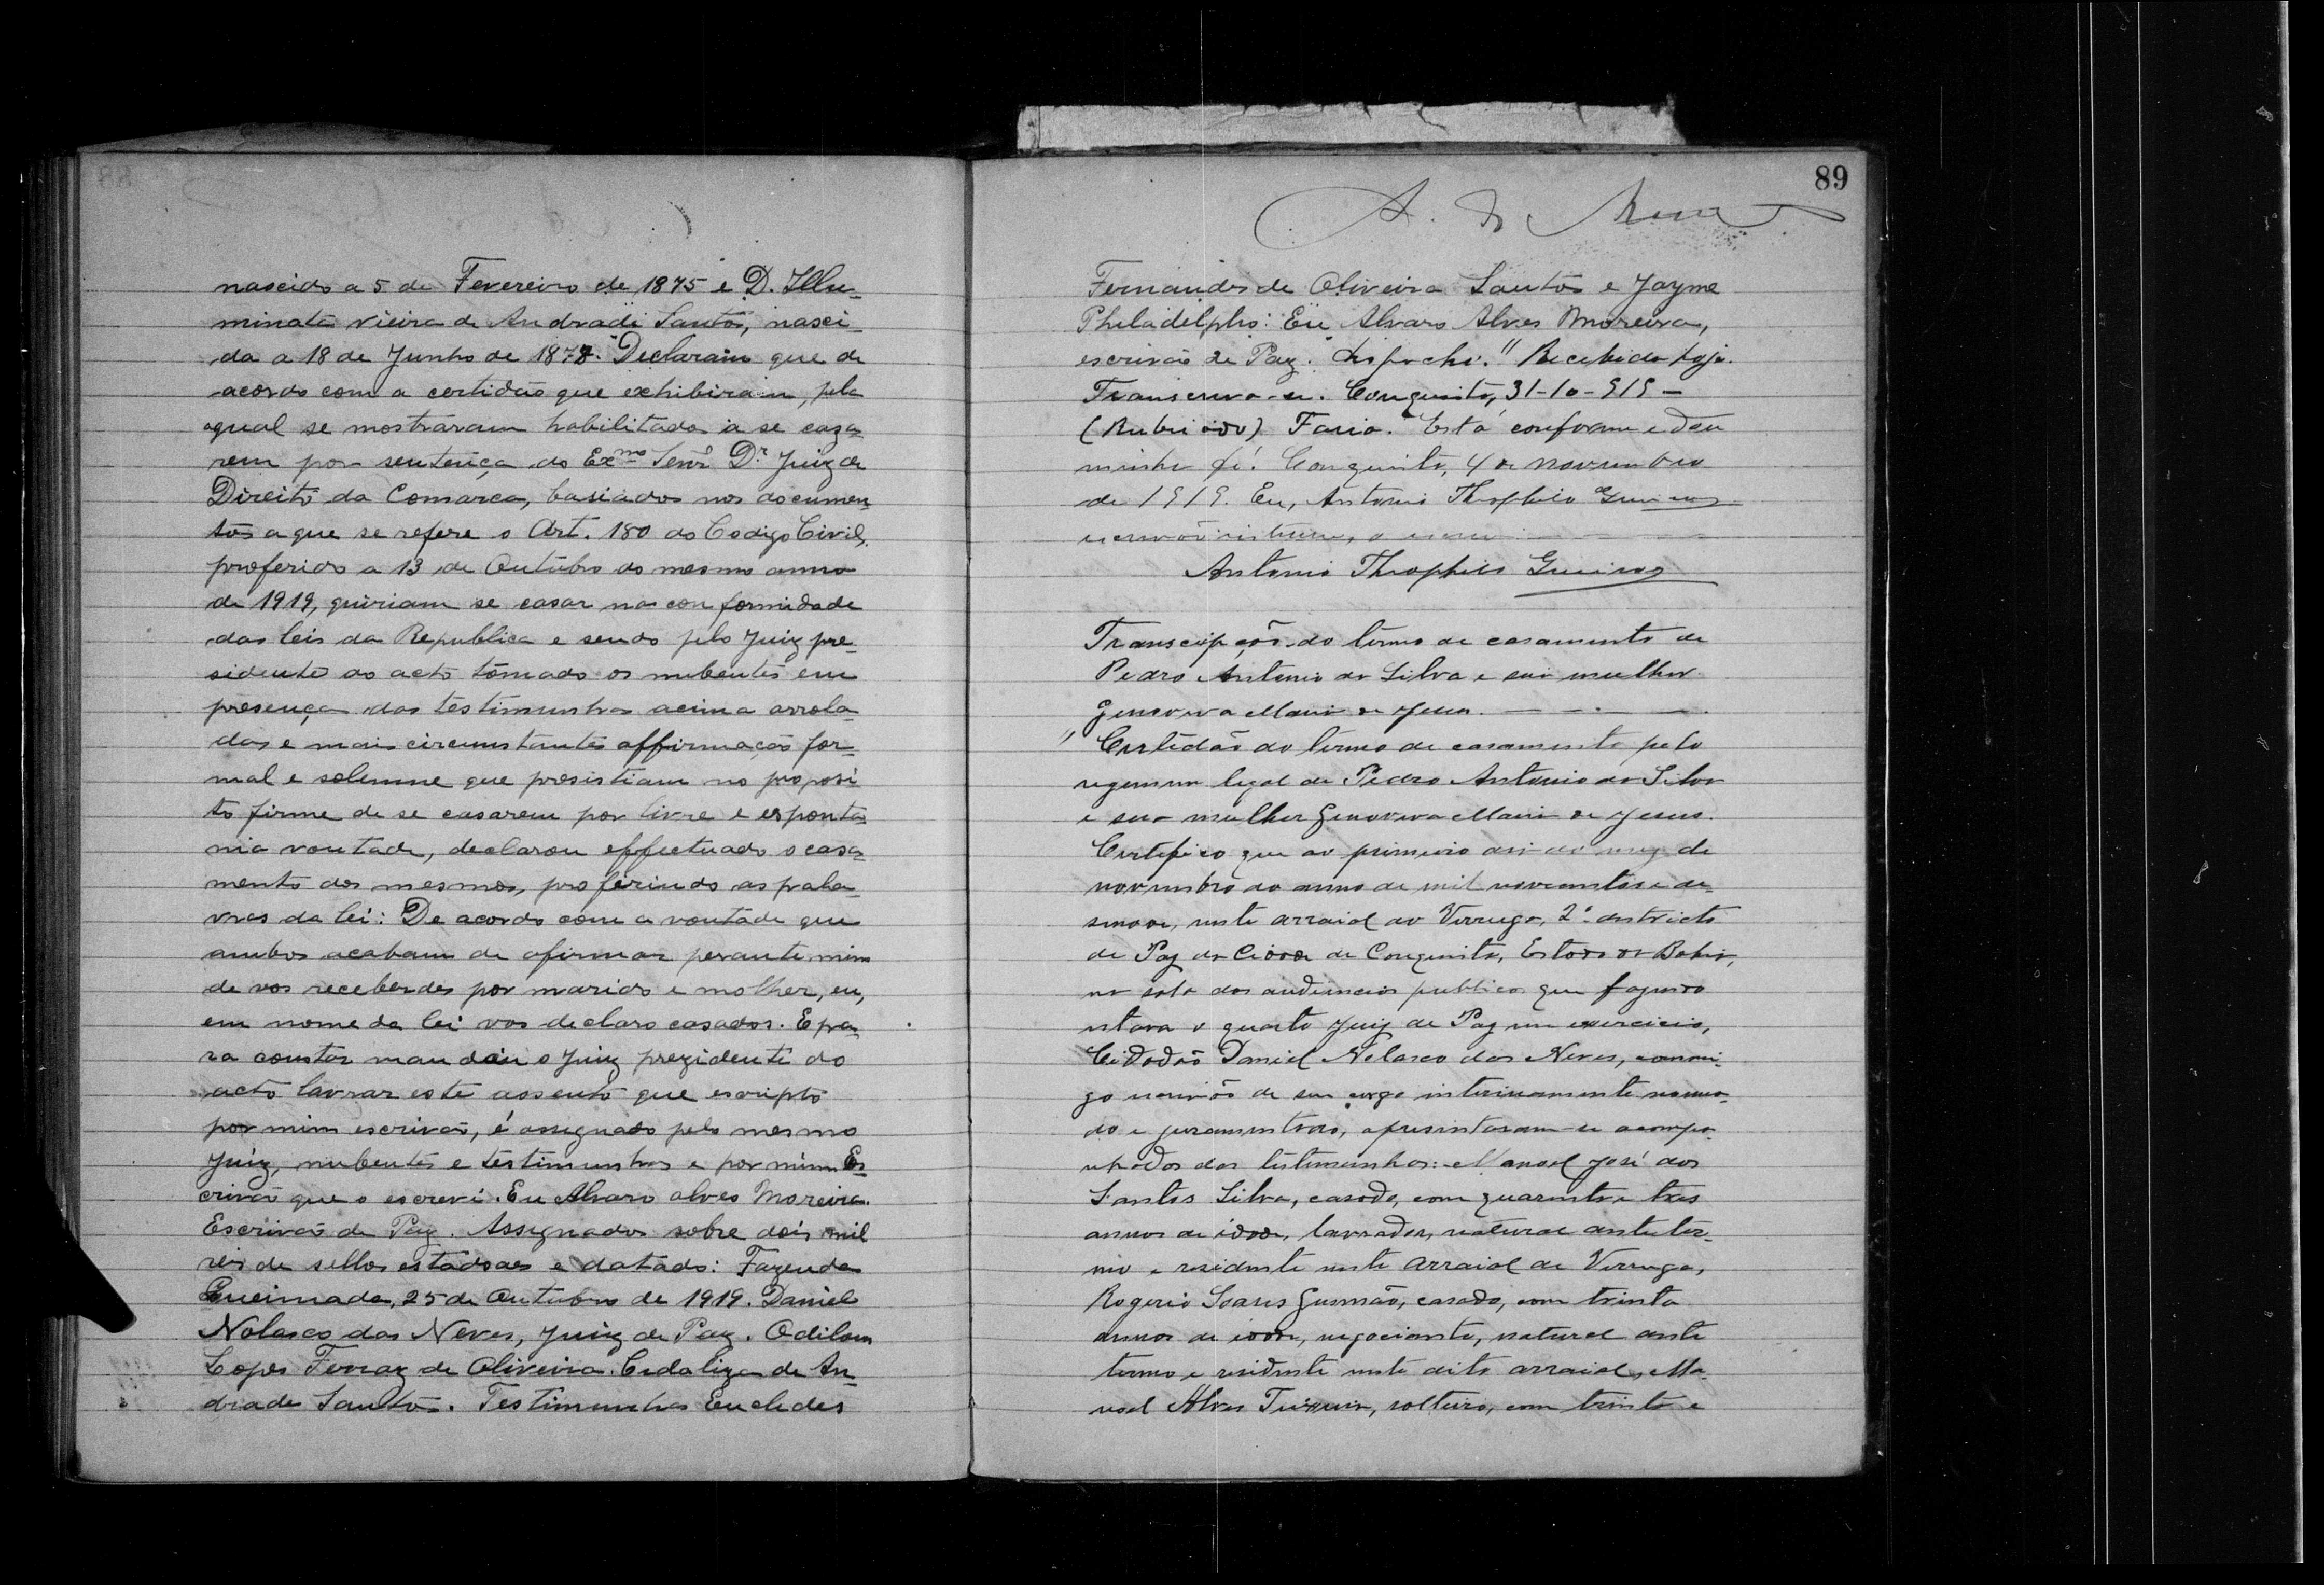 nascido a 5 de Fevereiro de 1875 e D. Illu-
minata vieira de Andrade Santos, nasci-
da a 18 de Junho de 1878. Declaram que de
acordo com a certidão que exhibiram, pela
qual se mostraram habilitados a se caza-
rem por sentença do Exmo Senr Dr Juiz de
Direito da Comarca, basiados nos documen-
tos a que se refere o Art. 180 do Codigo Civil,
proferido a 13 de Outubro do mesmo anno
de 1919, quiriam se casar na conformidade
das leis da Republica e sendo pelo Juiz pre-
sidente do acto tômado os nubentes em
presença das testimunhas acima arrola-
das e mais circumstantes affirmação for-
mal e solemne que presistiam no proposi-
to firme de se casarem por livre e esponta-
nia vontade, declarou effectuado o casa-
mento dos mesmos, proferindo as pala-
vras da lei: De acordo com a vontade que
ambos acabam de afirmar perante mim
de vos receberdes por marido e molher, eu,
em nome da lei vos declaro casados. E pa-
ra constar mandou o Juiz prezidente do
acto lavrar este assento que escripto
por mim escrivão, é assegnado pelo mesmo
Juiz, nubentes e testimunhas e por mim Es-
crivão que o escrevi. Eu Alvaro alves Moreira.
Escrivão de Paz. Assignados sobre dois mil
reis de sellos estadoaes e datado: Fazenda
Queimada, 25 de Outubro de 1919. Daniel
Nolasco das Neves, Juiz de Paz. Odilom
Lopes Ferraz de Oliveira. Cidaliza de An-
drade Santos. Testimunhas Euclides
89
A. de
Fernandes de Oliveira Santos e Jayme
Philadelpho: Eu Alvaro Alves Moreira,
escrivão de Paz. Despacho." Recebido hoje.
Transcreva-se. Conquista, 31-10-919 -
(Rubricado) Faria. Está conforme e dou
minha fé. Conquista, 4 de novembro
de 1919. Eu, Antonio Theophilo
escrivão interino, o escrevi
Antonio Theophilo
Transcripção do termo de casamento de
Pedro Antonio da Silva e sua mulher
Genoveva Maria de Jesus.
" Certidão do termo de casamento pelo
regimem legal de Pedro Antonio da Silva
e sua mulher Genoveva Maria de Jesus.
Certifico que ao primeiro dia do mez de
novembro do anno de mil novecentos e de-
senove, neste arraial do Verruga, 2º districto
de Paz da Cidade de Conquista, Estado da Bahia,
na sala das audiencias publicas que fazendo
estava o quarto Juiz de Paz em exercicio,
Cidadão Daniel Nolasco das Neves, commi-
go escrivão de seu cargo interinamente nomea-
do e juramentado, apresentaram-se acompa-
nhados das testimunhas: Manoel José dos
Santos Silva, casado, com quarenta e tres
annos de idade, lavrador, natural deste ter-
mo e residente neste arraial de Verruga,
Rogerio Soares Gusmão, casado, com trinta
annos de idade, negociante, natural deste
termo e residente neste dito arraial, Ma-
noel Alves Teixeira, solteiro, com trinta e